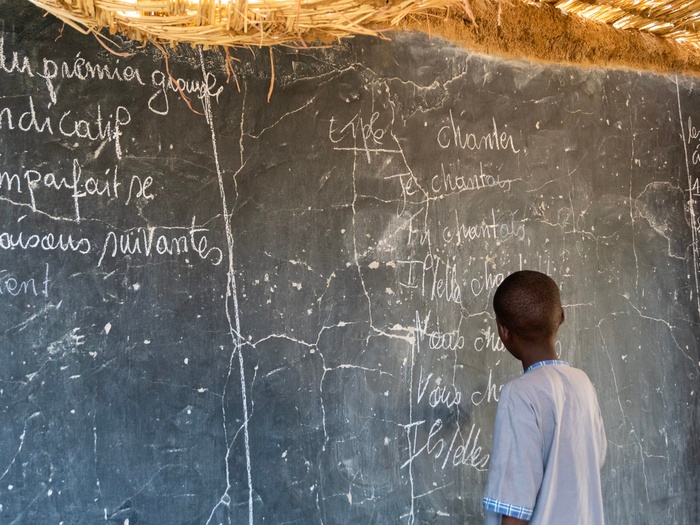 du prémier groupe
indicatif
imparfait se
aisons suivantes
ent
chanter
Je chantais
Tu chantais
Il/elle
Nous
Vous
Ils/elles